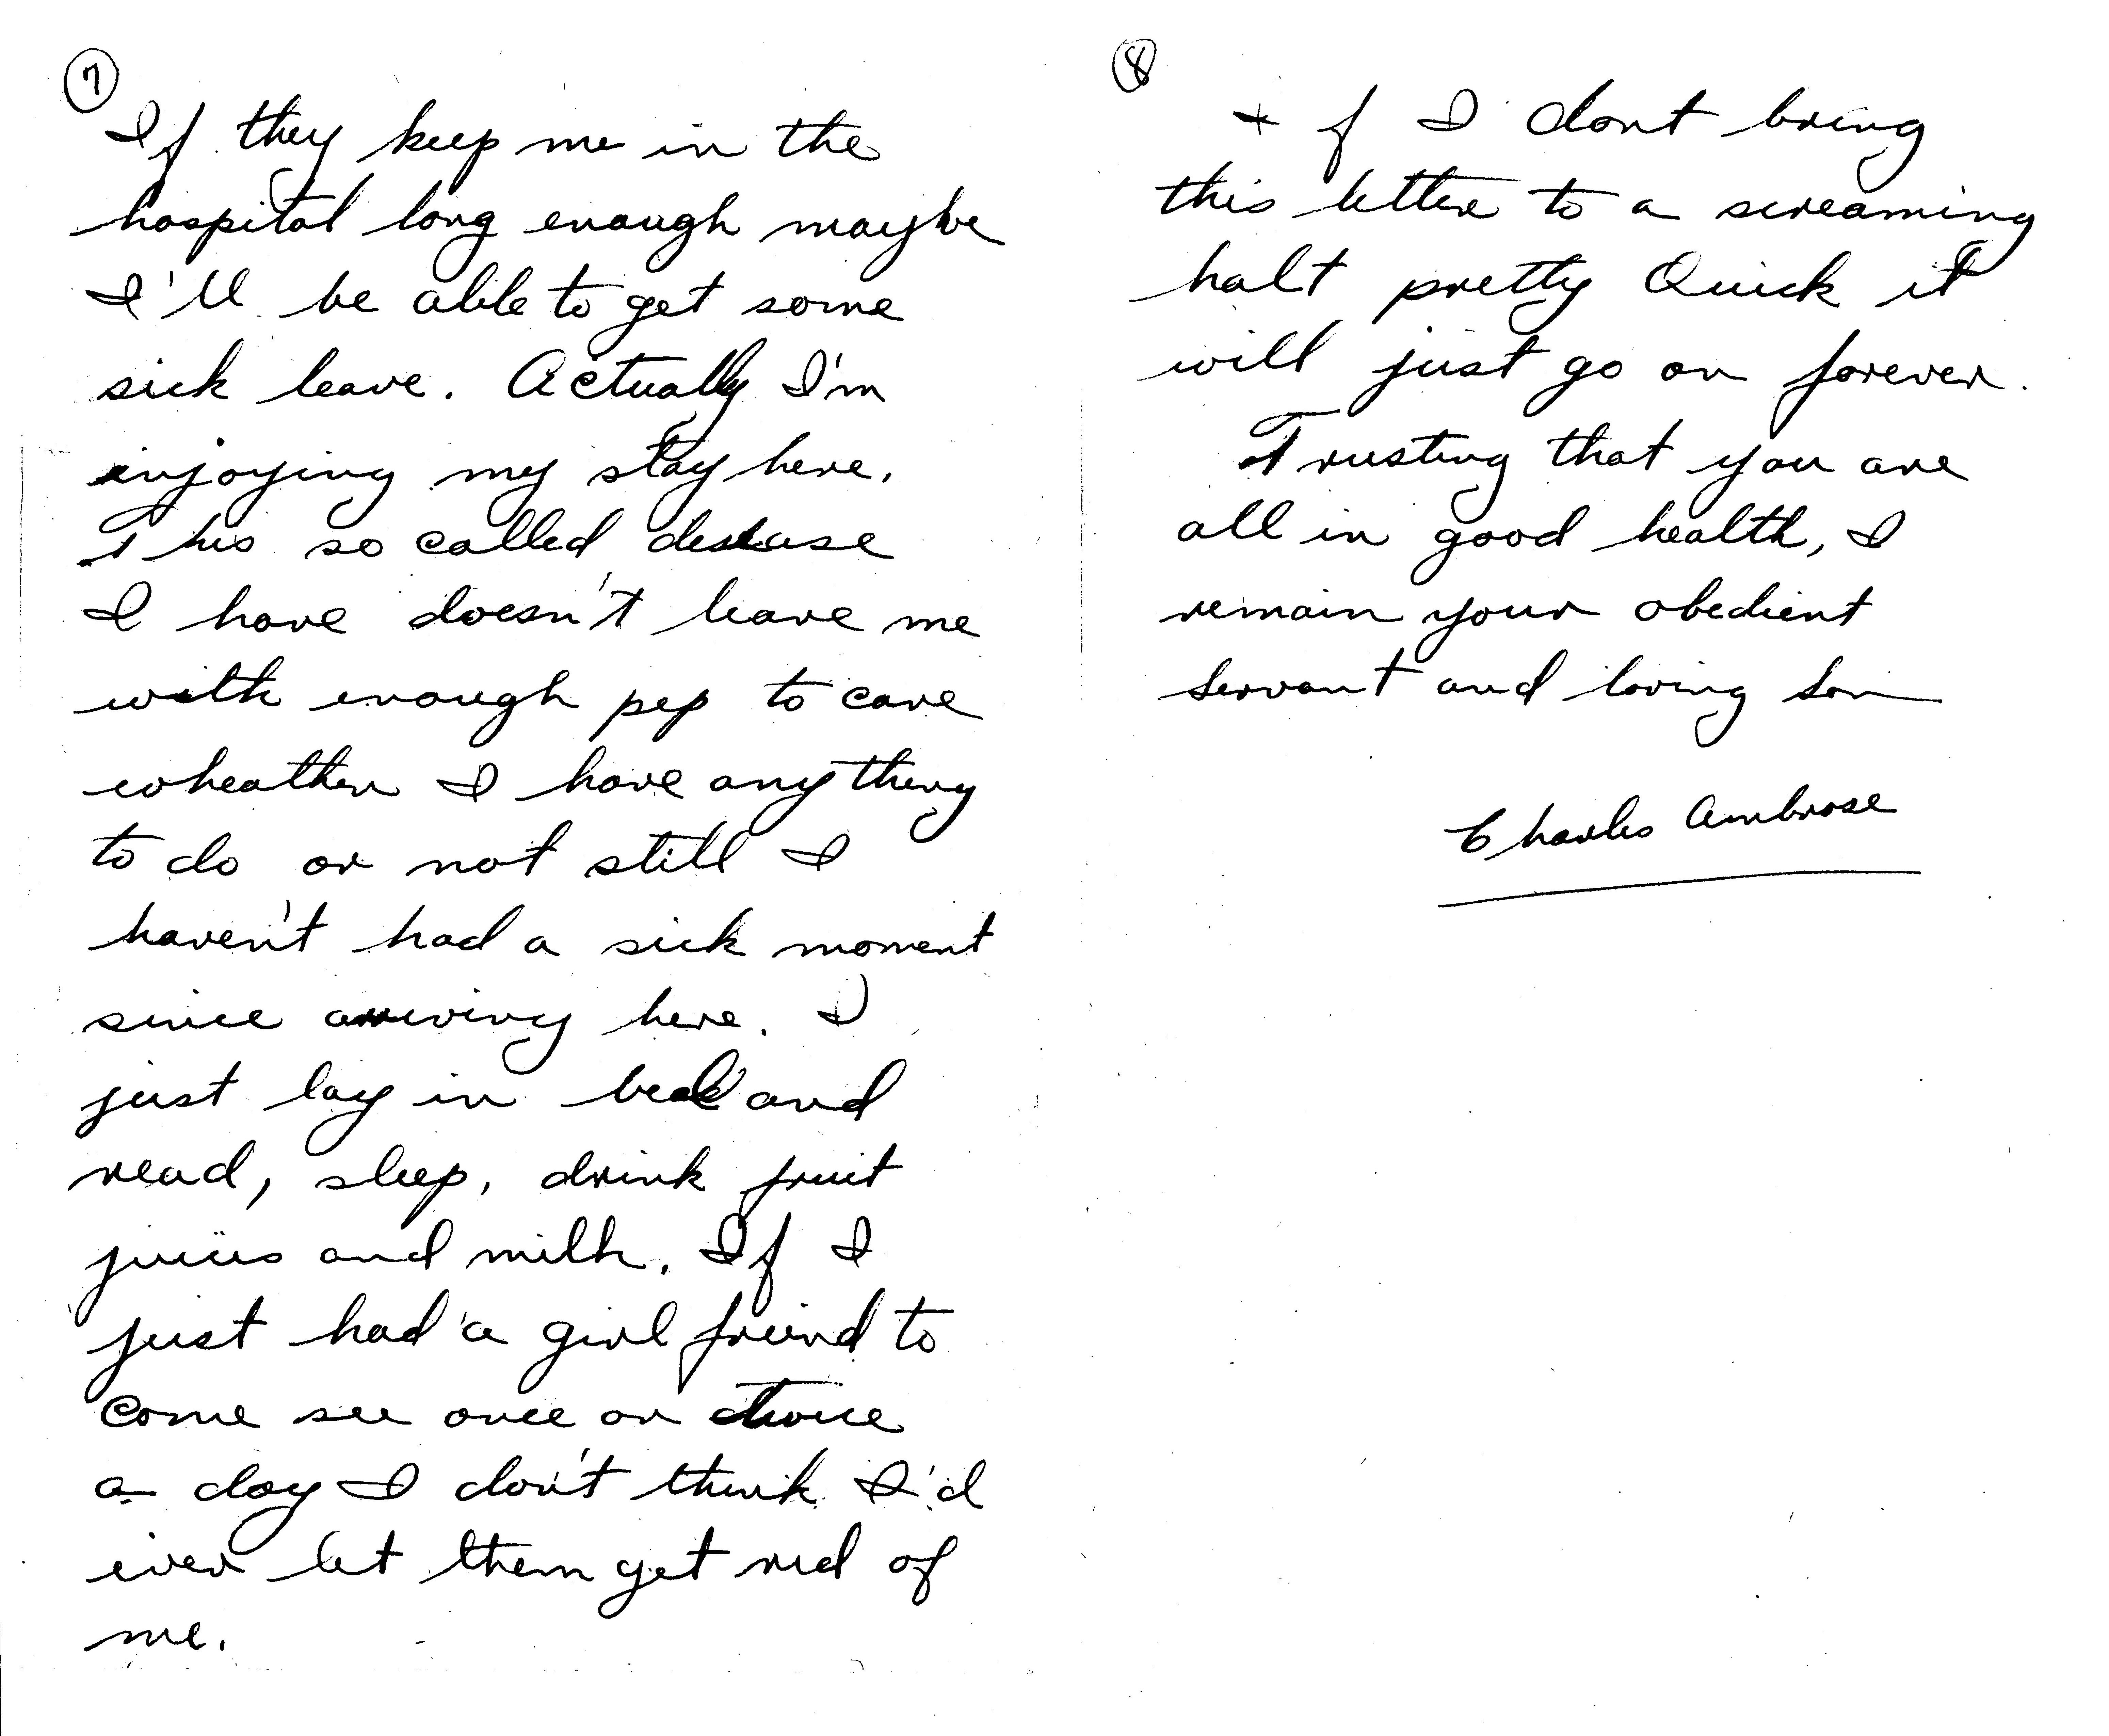 7
If they keep me in the
hospital long enough maybe
I'll be able to get some
sick leave. Actually I'm
enjoying my stay here.
This so called desease
I have doesn't leave me
with enough pep to care
wheather I have any thing
to do or not still I
haven't had a sick moment
since arriving here. I
just lay in bed and
read, sleep, drink fruit
juices and milk. If I
just had a girl friend to
come see once or twice
a day I don't think I'd
ever let them get rid of
me.
8
If I dont bring
this letter to a screaming
halt pretty Quick it
will just go on forever.
Trusting that you are
all in good health, I
remain your obedient
servant and loving son
Charles Ambrose